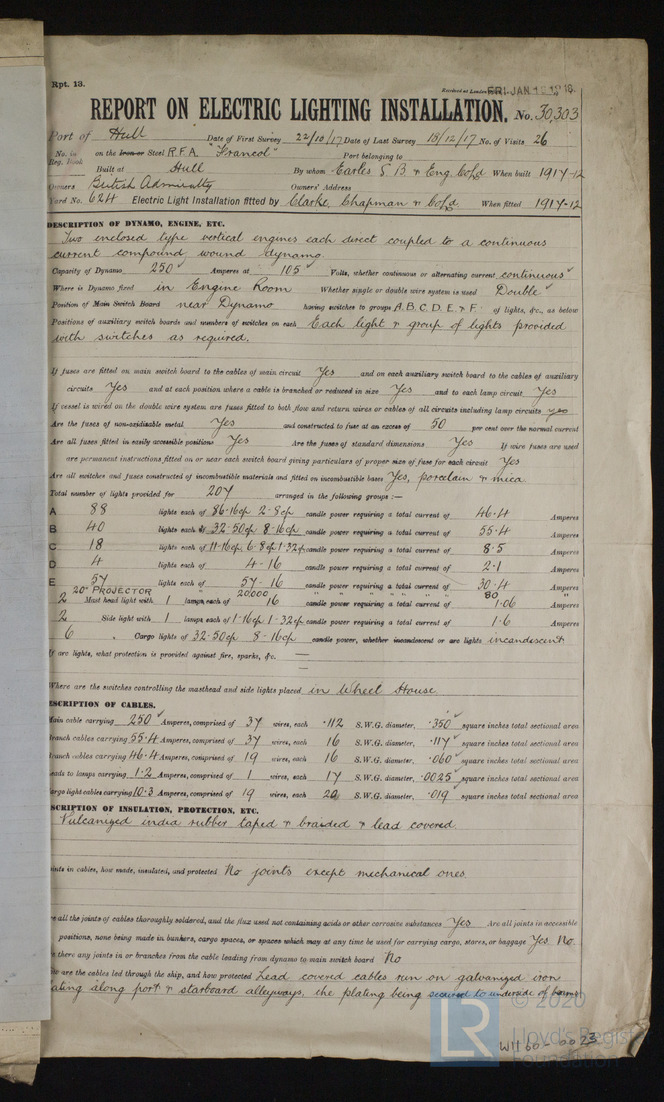 Rpt. 13.
Received at London FRI. JAN
REPORT ON ELECTRIC LIGHTING INSTALLATION. No. 30,303
Port of Hull Date of First Survey 22/10/17 Date of Last Survey 18/12/17 No. of Visits 26
No. in Reg. Book on the Iron or Steel R.F.A. "Francol" Port belonging to
Built at Hull By whom Earles S B & Eng. Co Ld When built 1917-12
Owners British Admiralty Owners' Address
Yard No. 624 Electric Light Installation fitted by Clarke, Chapman & Co Ld. When fitted 1917-12
DESCRIPTION OF DYNAMO, ENGINE, ETC.
Two enclosed type vertical engines each direct coupled to a continuous
current compound wound dynamo
Capacity of Dynamo 250 Amperes at 105 Volts, whether continuous or alternating current continuous
Where is Dynamo fixed in Engine Room Whether single or double wire system is used Double
Position of Main Switch Board near Dynamo having switches to groups A. B. C. D. E. & F. of lights, &c., as below
Positions of auxiliary switch boards and numbers of switches on each Each light & group of lights provided
with switches as required.
If fuses are fitted on main switch board to the cables of main circuit Yes and on each auxiliary switch board to the cables of auxiliary
circuits Yes and at each position where a cable is branched or reduced in size Yes and to each lamp circuit Yes
If vessel is wired on the double wire system are fuses fitted to both flow and return wires or cables of all circuits including lamp circuits yes
Are the fuses of non-oxidizable metal Yes and constructed to fuse at an excess of 50 per cent over the normal current
Are all fuses fitted in easily accessible positions Yes Are the fuses of standard dimensions Yes If wire fuses are used
are permanent instructions fitted on or near each switch board giving particulars of proper size of fuse for each circuit Yes
Are all switches and fuses constructed of incombustible materials and fitted on incombustible bases Yes, porcelain & mica
Total number of lights provided for 207 arranged in the following groups :—
A 88 lights each of 86-16cp 2-8cp candle power requiring a total current of 46.4 Amperes
B 40 lights each of 32-50cp 8-16cp candle power requiring a total current of 55.4 Amperes
C 18 lights each of 11-16cp. 6-8cp 1-32cp candle power requiring a total current of 8.5 Amperes
D 4 lights each of 4-16 candle power requiring a total current of 2.1 Amperes
E 57 lights each of 57-16 candle power requiring a total current of 30.4 Amperes
20" PROJECTOR " 20,000 " " " " " " 80 "
2 Mast head light with 1 lamps each of 16 candle power requiring a total current of 1.06 Amperes
2 Side light with 1 lamps each of 1-16cp 1-32cp candle power requiring a total current of 1.6 Amperes
6 Cargo lights of 32-50cp 8-16cp candle power, whether incandescent or arc lights incandescent
If arc lights, what protection is provided against fire, sparks, &c. —
—
Where are the switches controlling the masthead and side lights placed in Wheel House.
ESCRIPTION OF CABLES.
Main cable carrying 250 Amperes, comprised of 37 wires, each .112 S.W.G. diameter, .350 square inches total sectional area
Branch cables carrying 55.4 Amperes, comprised of 37 wires, each 16 S.W.G. diameter, .117 square inches total sectional area
Branch cables carrying 46.4 Amperes, comprised of 19 wires, each 16 S.W.G. diameter, .060 square inches total sectional area
Leads to lamps carrying 1.2 Amperes, comprised of 1 wires, each 17 S.W.G. diameter, .0025 square inches total sectional area
argo light cables carrying 10.3 Amperes, comprised of 19 wires, each 20 S.W.G. diameter, .019 square inches total sectional area
SCRIPTION OF INSULATION, PROTECTION, ETC.
Vulcanized india rubber taped & braided & lead covered.
oints in cables, how made, insulated, and protected No joints except mechanical ones.
re all the joints of cables thoroughly soldered, and the flux used not containing acids or other corrosive substances Yes Are all joints in accessible
positions, none being made in bunkers, cargo spaces, or spaces which may at any time be used for carrying cargo, stores, or baggage Yes No.
e there any joints in or branches from the cable leading from dynamo to main switch board No
ow are the cables led through the ship, and how protected Lead covered cables run on galvanized iron
lating along port & starboard alleyways, the plating being secured to underside of beams
© 2020
LR Lloyd's Regist
Foundation
W1160-0023